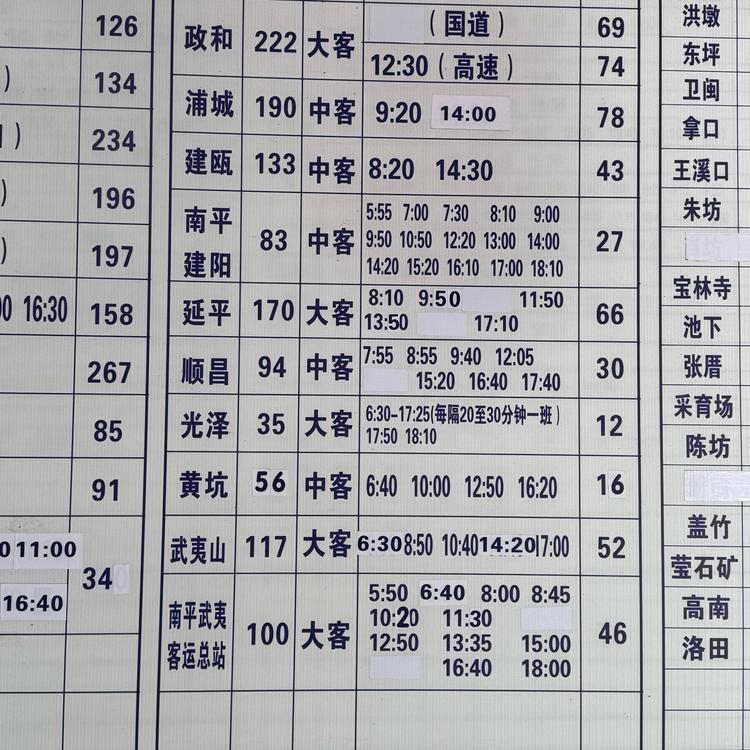 126
134
234
196
197
00 16:30 158
267
85
91
0 11:00
34
16:40
政和 222 大客
(国道) 69
12:30 (高速) 74
浦城 190 中客 9:20 14:00 78
建瓯 133 中客 8:20 14:30 43
南平
建阳
83 中客
5:55 7:00 7:30 8:10 9:00
9:50 10:50 12:20 13:00 14:00
14:20 15:20 16:10 17:00 18:10
27
延平 170 大客
8:10 9:50 11:50
13:50 17:10
66
顺昌 94 中客
7:55 8:55 9:40 12:05
15:20 16:40 17:40
30
光泽 35 大客
6:30-17:25(每隔20至30分钟一班)
17:50 18:10
12
黄坑 56 中客 6:40 10:00 12:50 16:20 16
武夷山 117 大客 6:30 8:50 10:40 14:20 17:00 52
南平武夷
客运总站
100 大客
5:50 6:40 8:00 8:45
10:20 11:30
12:50 13:35 15:00
16:40 18:00
46
洪墩
东坪
卫闽
拿口
王溪口
朱坊
宝林寺
池下
张厝
采育场
陈坊
盖竹
莹石矿
高南
洛田